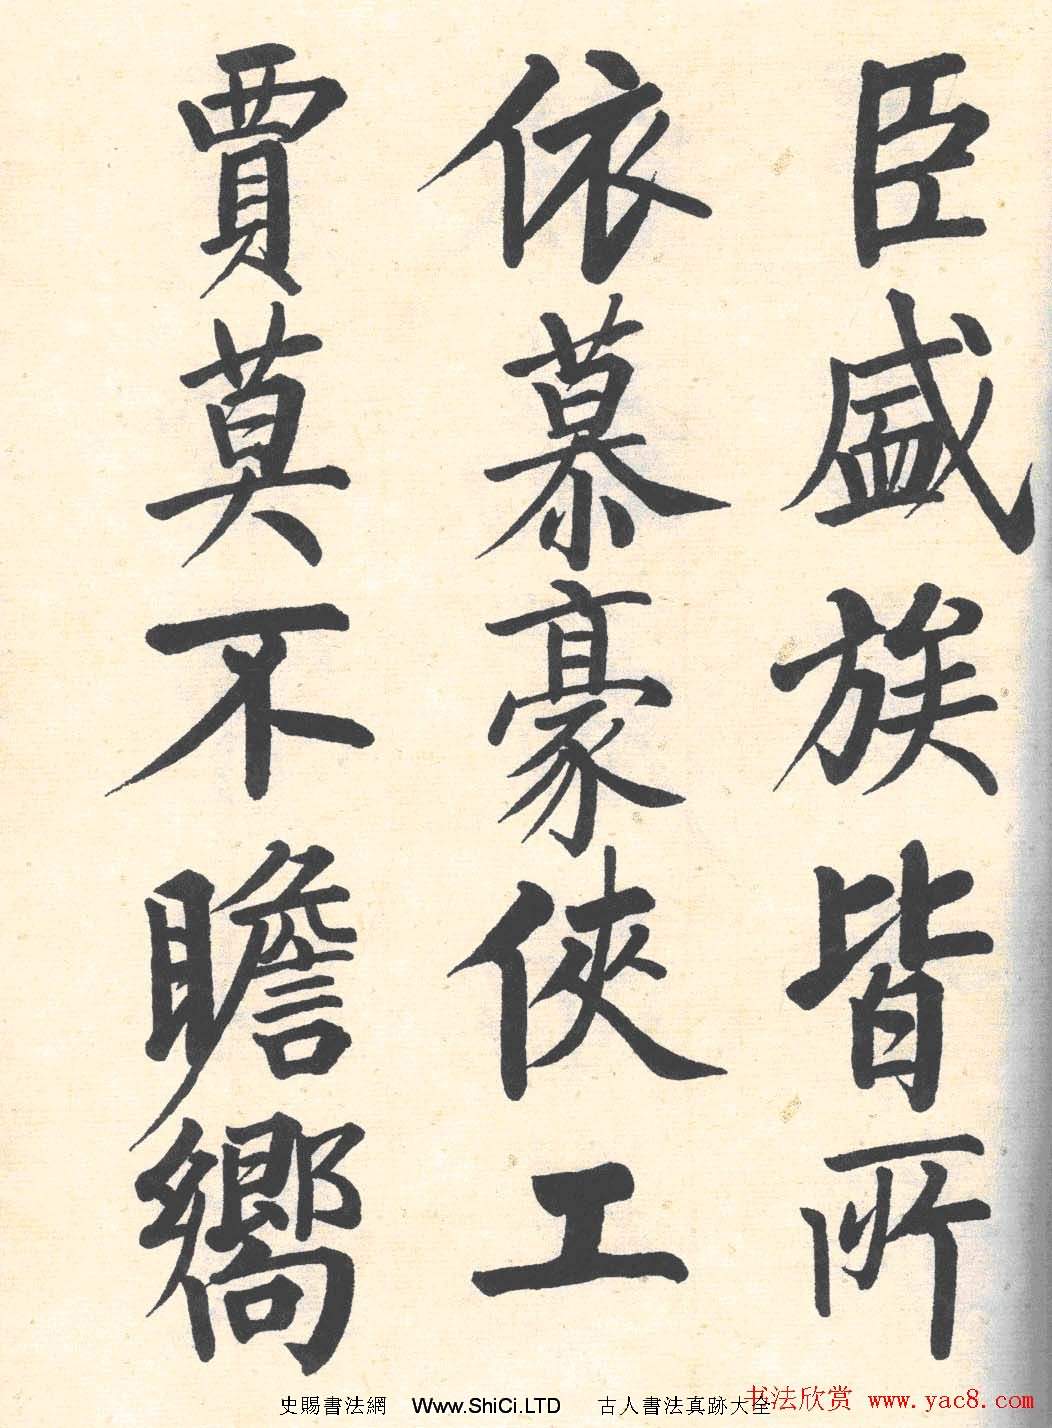 臣盛族皆所
依慕豪俠工
賈莫不瞻嚮
史賜書法網 Www.ShiCi.LTD 古人書法真跡大全
书法欣赏 www.yac8.com